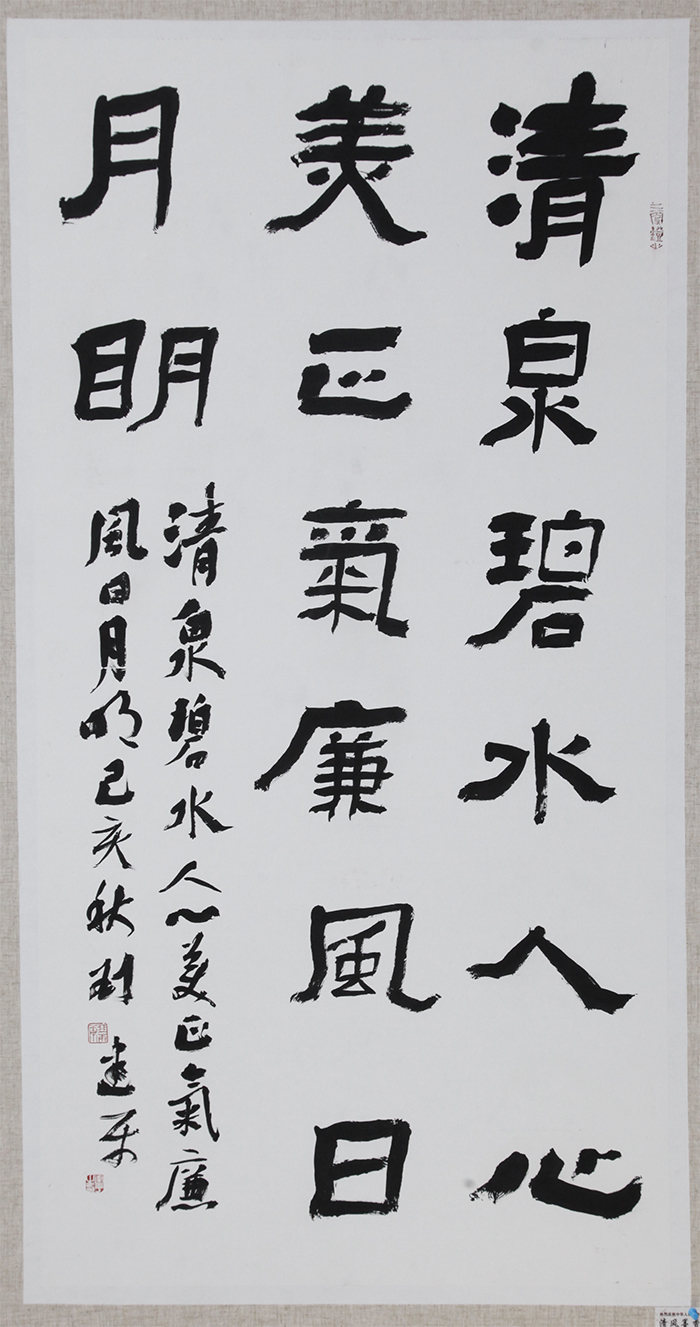 清泉碧水人心
美正氣廉風日
月明
清泉碧水人心美正氣廉
風日月明己亥秋刘建
清风